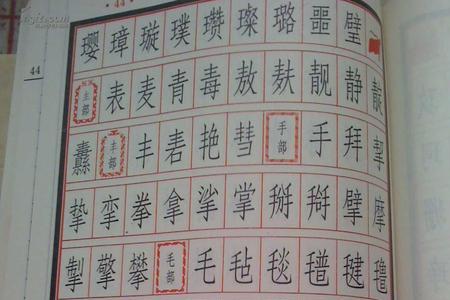 44
璎璋璇璞瓒璨璐噩璧
44
主部 表麦青毒敖麸靓静靛
纛 丰部 丰砉艳彗 手部 手拜挈
挚挛拳拿挲掌掰掰擘摩
掣擎攀 毛部 毛毡毯毽